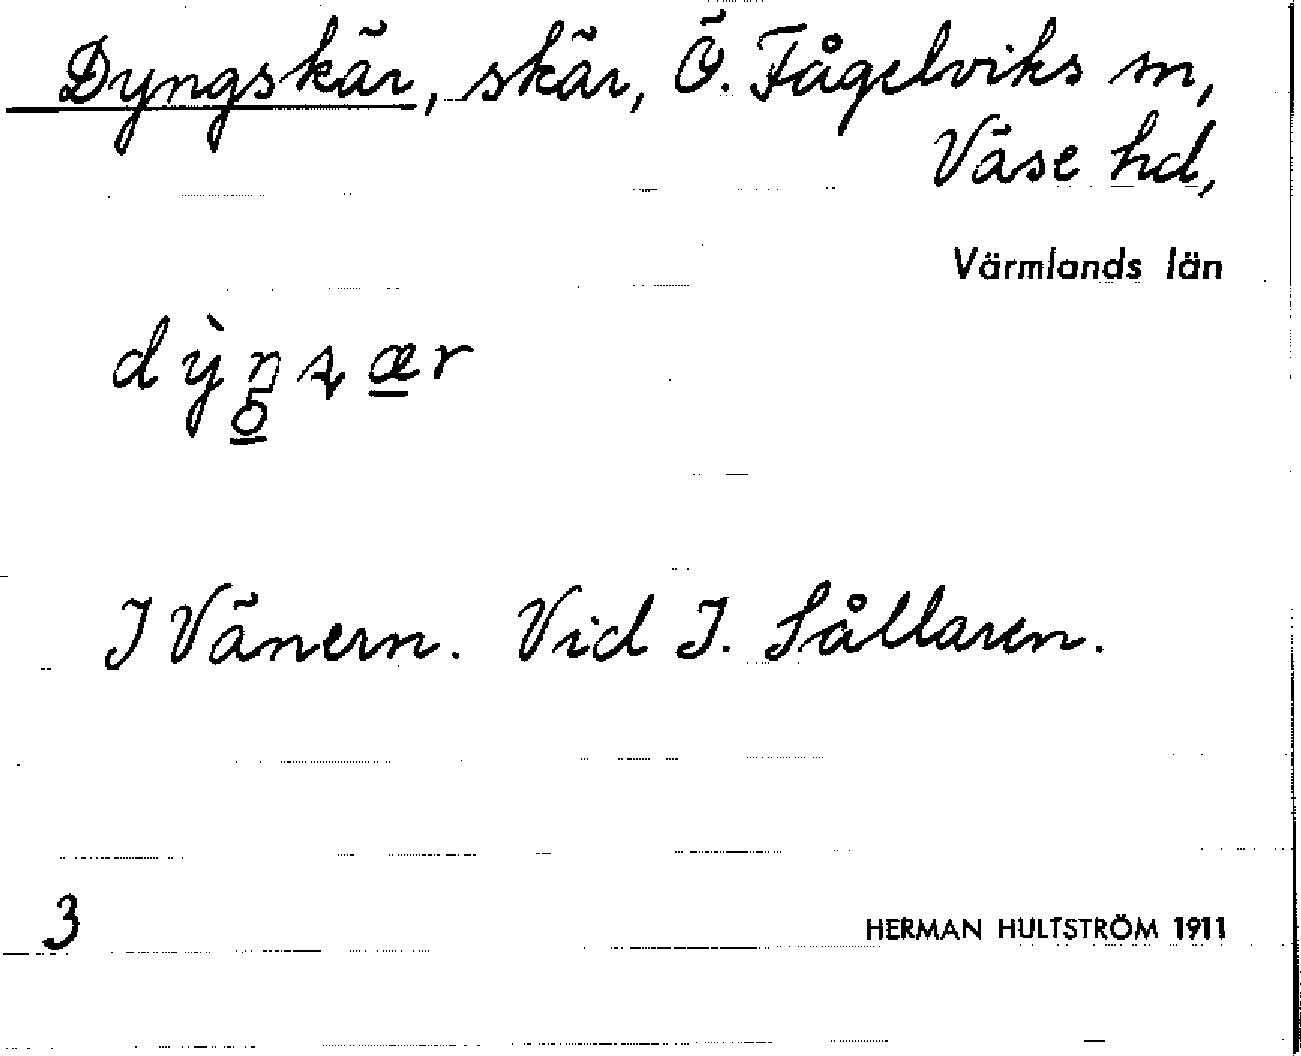 Dyngskär, skär, Ö. Fågelviks sn,
Väse hd,
Värmlands län
I Vänern. Vid I. Sållaren.
3
HERMAN HULTSTRÖM 1911